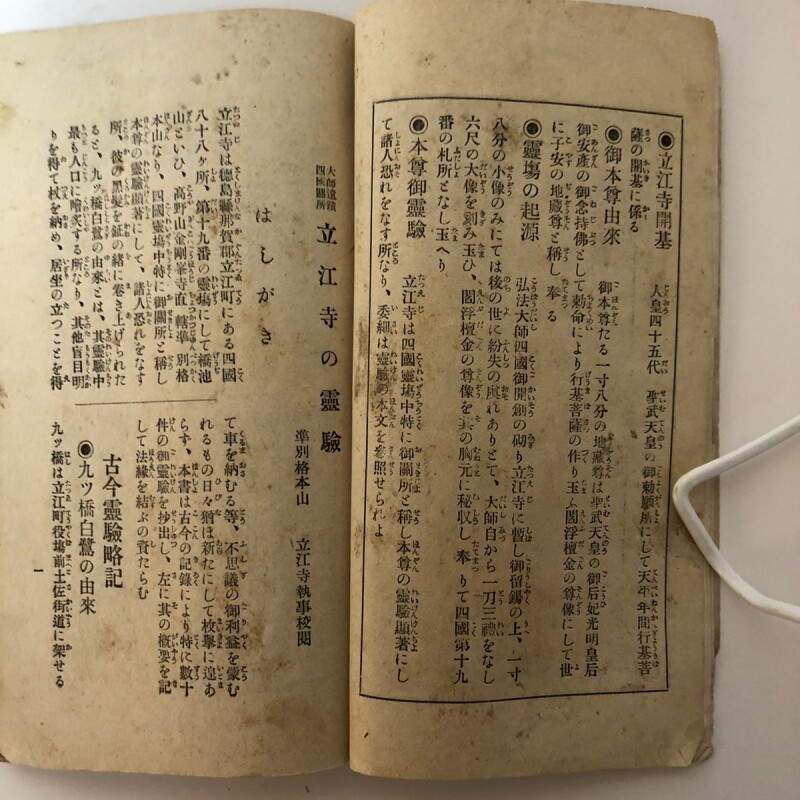 ◉立江寺開基　人皇四十五代　聖武天皇の御勅願所にして天平年間行基菩
薩の開基に係る
◉御本尊由來　御本尊たる一寸八分の地藏尊は聖武天皇の御后妃光明皇后
御安產の御念持佛として勅命により行基菩薩の作り玉ふ閻浮檀金の尊像にして世
に子安の地藏尊と稱し奉る
◉靈塲の起源　弘法大師四國御開創の砌り立江寺に暫し御留錫の上、一寸
八分の小像のみにては後の世に紛失の虞れありとて、大師自から一刀三禮をなし
六尺の大像を刻み玉ひ、閻浮檀金の尊像を其の胸元に秘収し奉りて四國第十九
番の札所となし玉へり
◉本尊御靈驗　立江寺は四國靈塲中特に御關所と稱し本尊の靈驗顯著にし
て諸人恐れをなす所なり、委細は靈驗の本文を參照せられよ
大師遺蹟
四國關所
立江寺の靈驗
準別格本山　立江寺執事校閲
はしがき
立江寺は德島縣那賀郡立江町にある四國
八十八ケ所、第十九番の靈塲にして橋池
山といひ、高野山金剛峯寺直轄準別格
本山なり、四國靈塲中特に御關所と稱し
本尊の靈驗顯著にして、諸人恐れをなす
所、彼の黑髮を鉦の緒に卷き上げられた
ると、九ツ橋白鷺の由來とは、其靈驗中
最も人口に膾炙する所なり、其他盲目明
りを得て杖を納め、居坐の立つことを得
て車を納むる等、不思議の御利益を蒙む
れるもの日々猶ほ新たにして枚擧に遑あ
らず、本書は古今の記錄により特に數十
件の御靈驗を抄出し、左に其の概要を記
して法緣を結ぶの資たらむ
古今靈驗略記
◉九ツ橋白鷺の由來
九ツ橋は立江町役塲前土佐街道に架せる
一